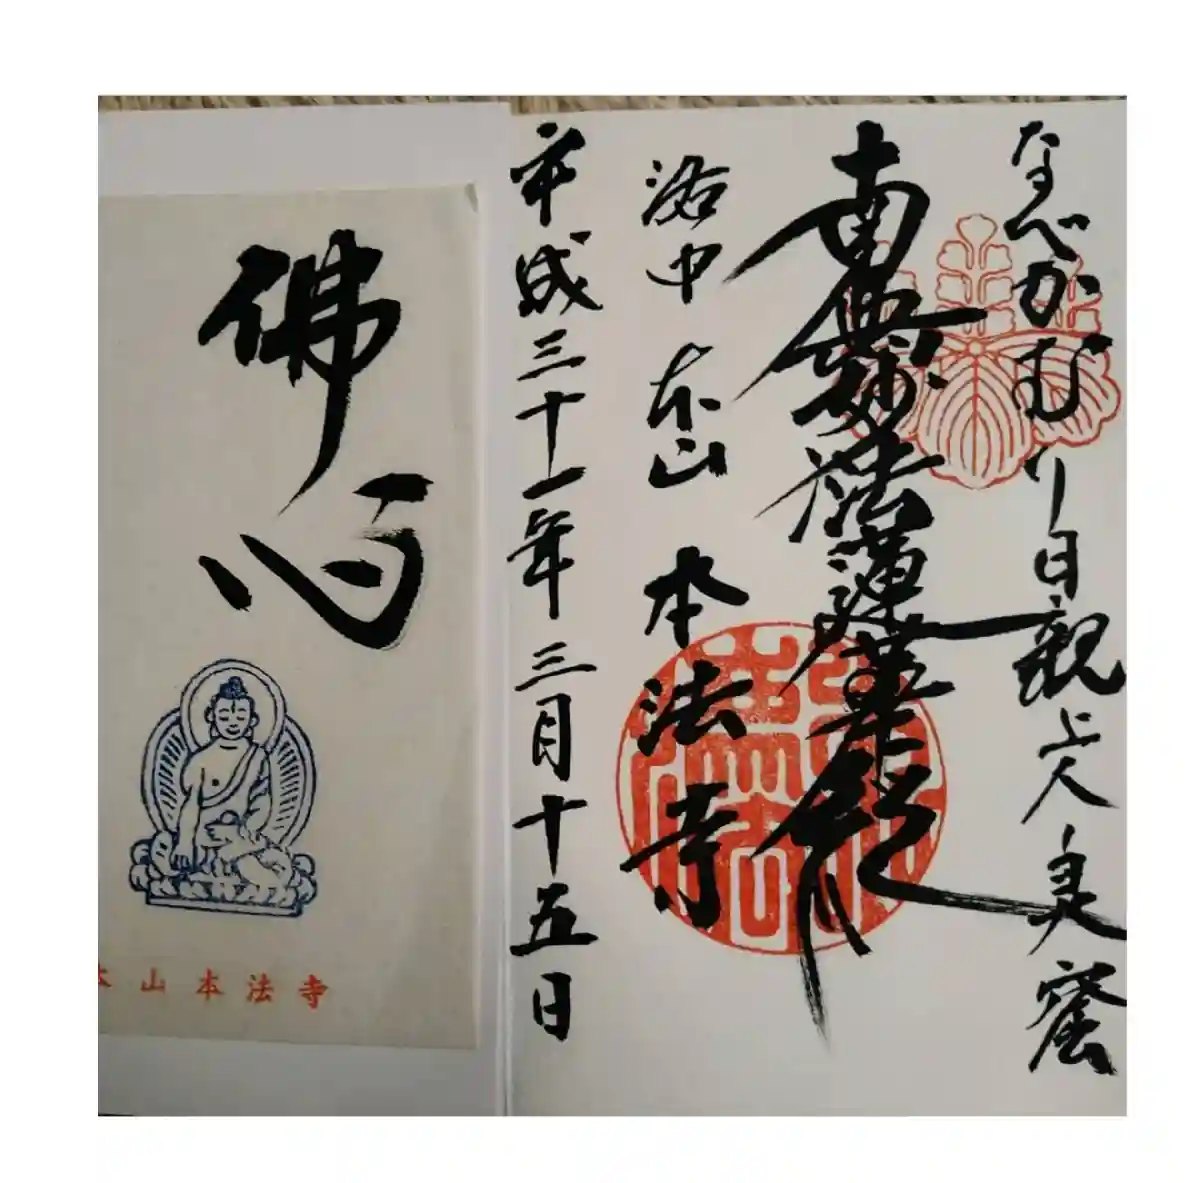 なべかむり日親上人
南無妙法蓮華経
洛中 本山 本法寺
平成三十一年三月十五日
佛心
本山本法寺